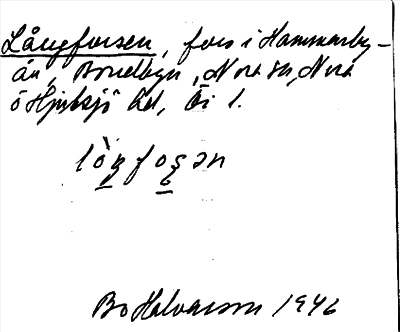 Långforsen, fors i Hammarby-
ån, Bondbyn, Nora sn, Nora
o Hjulsjö hd, Ör l.
lòŋfoşən
Bo Halvarson 1946